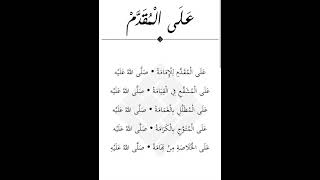 عَلَى الْمُقَدَّمْ
عَلَى الْمُقَدَّمِ لِلْإِمَامَةْ • صَلَّى اللهُ عَلَيْه
عَلَى الْمُشَفَّعِ فِي الْقِيَامَةْ • صَلَّى اللهُ عَلَيْه
عَلَى الْمُظَلَّلِ بِالْغَمَامَةْ • صَلَّى اللهُ عَلَيْه
عَلَى الْمُتَوَّجِ بِالْكَرَامَةْ • صَلَّى اللهُ عَلَيْه
عَلَى الْخُلَاصَةِ مِنْ تِهَامَةْ • صَلَّى اللهُ عَلَيْه